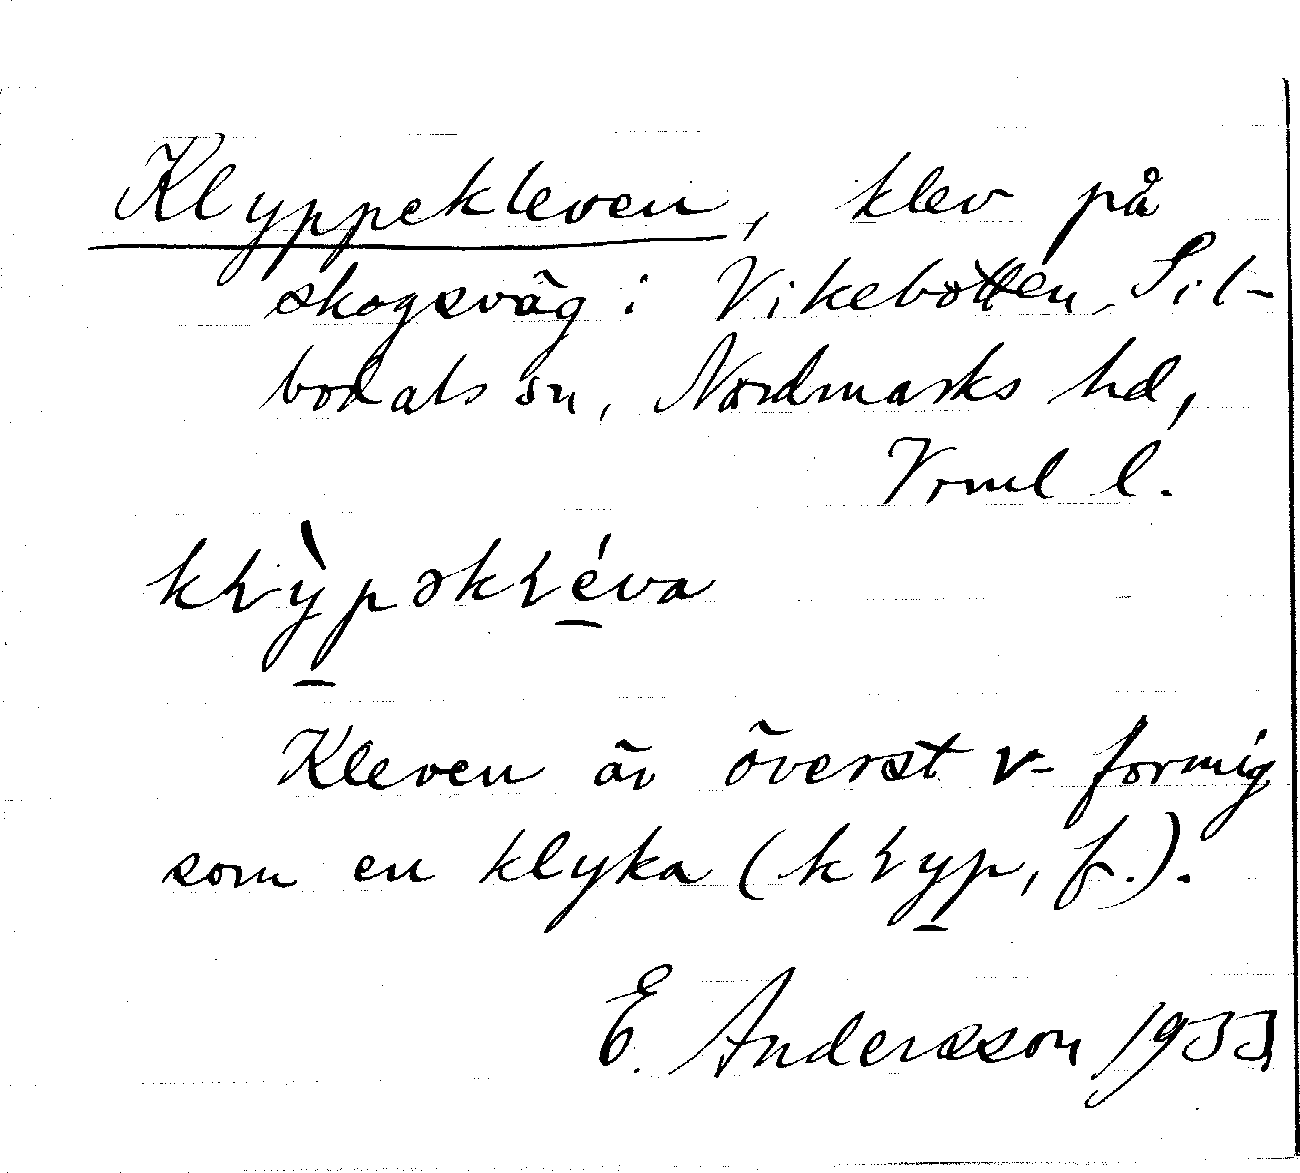 Klyppekleven, klev på
skogsväg i Vikebotten, Sil-
bodals sn, Nordmarks hd,
Vrml l.
kłỳ̱pəkłé̱va
Kleven är överst v-formig
som en klyka (kły̱p, f.).
E. Andersson 1933